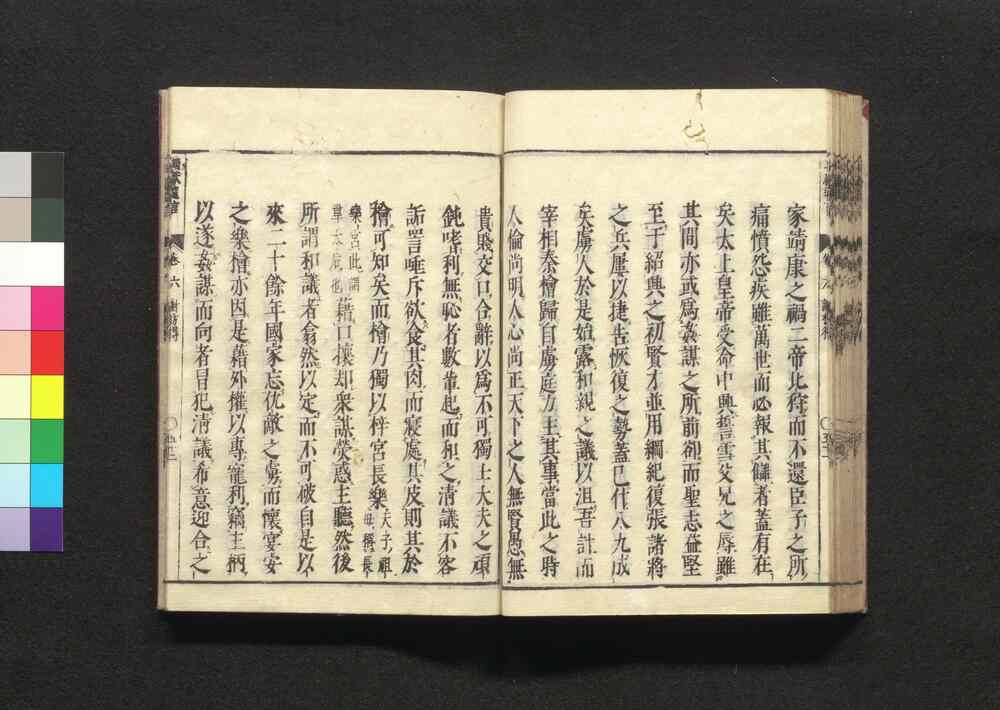 家靖康之禍二帝北狩而不還臣子之所
痛憤怨疾雖萬世而必報其讎者蓋有在
矣太上皇帝受命中興誓雪父兄之辱雖
其間亦或爲姦謀之所前卻而聖志益堅
至于紹興之初賢才並用綱紀復張諸將
之兵屢以捷告恢復之勢蓋已什八九成
矣虜人於是始露和親之議以沮吾計而
宰相秦檜歸自虜庭力主其事當此之時
人倫尚明人心尚正天下之人無賢愚無
貴賤交口合辭以爲不可獨士大夫之頑
鈍嗜利無恥者數輩起而和之清議不容
詬詈唾斥欲食其肉而寢處其皮則其於
檜可知矣而檜乃獨以梓宮長樂天子祖母稱長
樂宮此謂韋太后也藉口攘却衆謀熒惑主聽然後
所謂和議者翕然以定而不可破自是以
來二十餘年國家忘仇敵之虜而懷宴安
之樂檜亦因是藉外權以專寵利竊主柄
以遂姦謀而向者冒犯清議希意迎合之
卷六